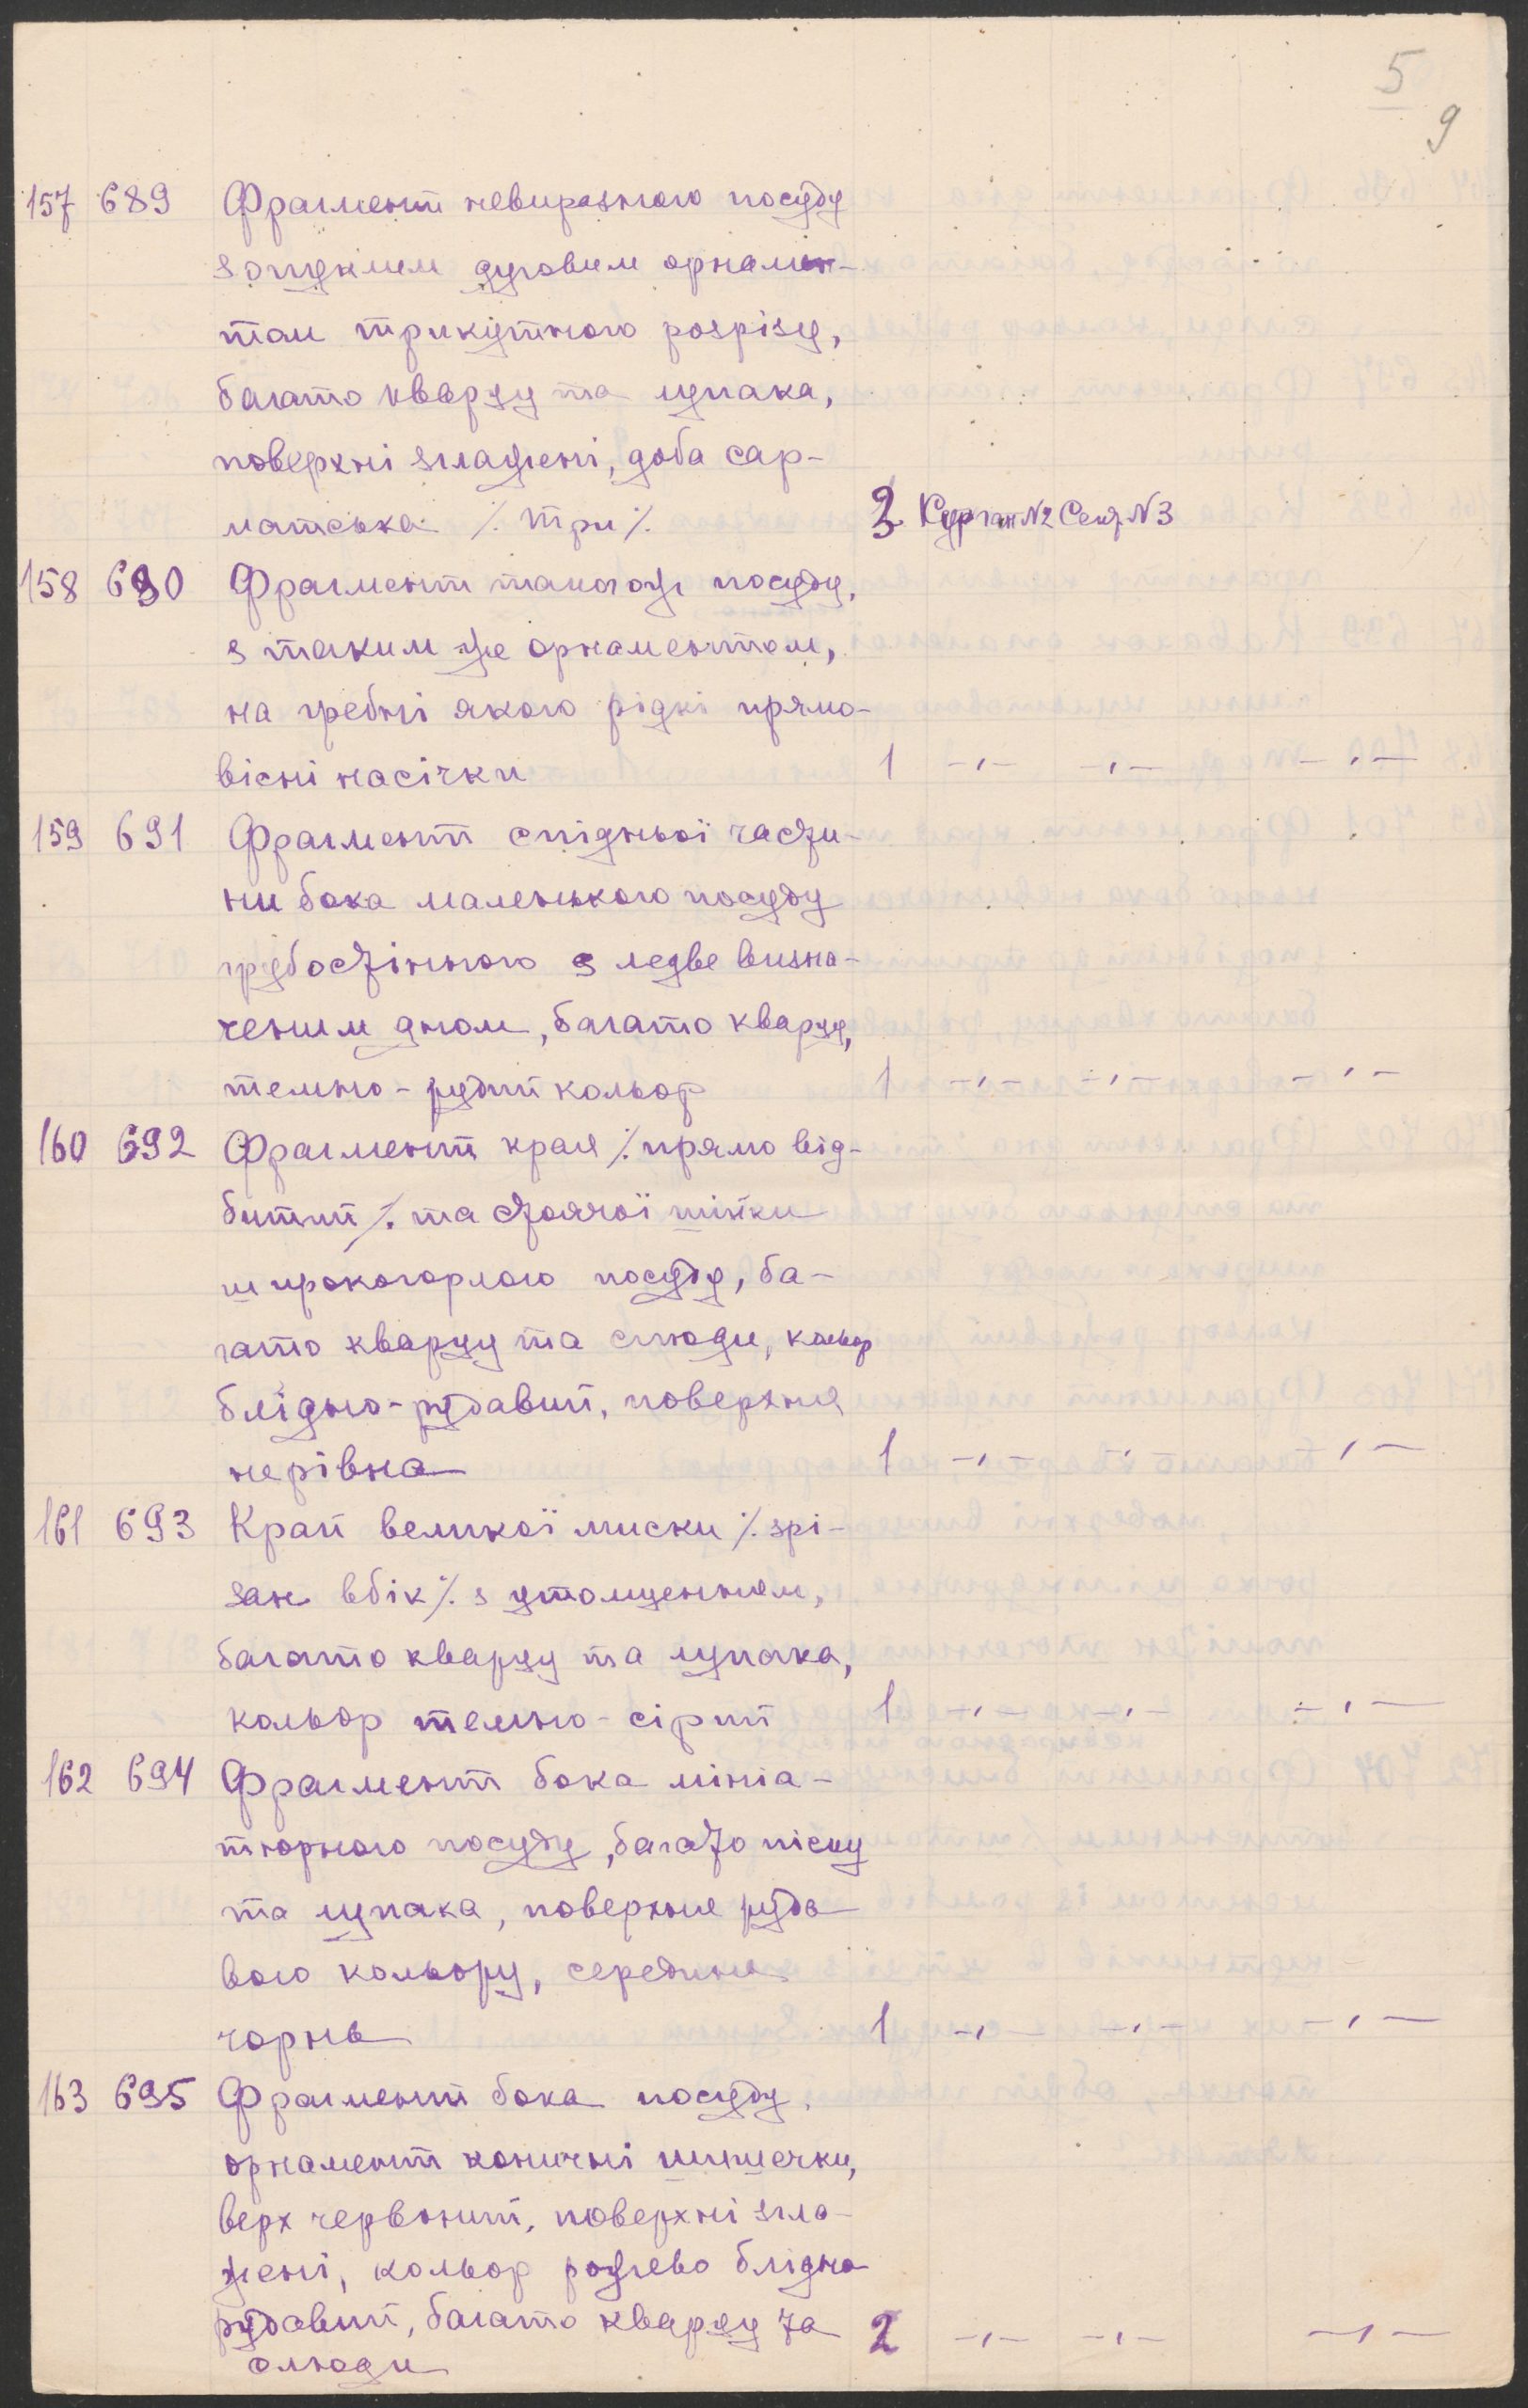 5
9
157 689 Фрагмент невиразного посуду
з опуклим дуговим орнамен-
том трикутного розрізу,
багато кварцу та лупака,
поверхні зглажені, доба сар-
матська ./. три ./. 3 Курган №2 Сект №3
158 690 Фрагмент такогож посуду,
з таким же орнаментом,
на гребні якого рідкі прямо-
вісні насічки 1 -,,- -,,- -,,-
159 691 Фрагмент спідньої части-
ни бока маленького посуду
грубостінного з ледве визна-
ченим дном, багато кварцу,
темно-рудий кольор 1 -,,- -,,- -,,-
160 692 Фрагмент края ./. прямо від-
битий ./. та стоячої шийки
широкогорлого посуду, ба-
гато кварцу та слюди, кольор
блідно-рудавий, поверхня
нерівна 1 -,,- -,,- -,,-
161 693 Край великої миски ./. зрі-
зан вбік ./. з утолщенням,
багато кварцу та лупака,
кольор темно-сірий 1 -,,- -,,- -,,-
162 694 Фрагмент бока мініа-
тюрного посуду, багато піску
та лупака, поверхня руда
вого кольору, середина
чорна 1 -,,- -,,- -,,-
163 695 Фрагмент бока посуду,
орнамент конічні шишечки,
верх червоний, поверхні згла-
жені, кольор рожево блідно
рудавий, багато кварцу та 2 -,,- -,,- -,,-
слюди